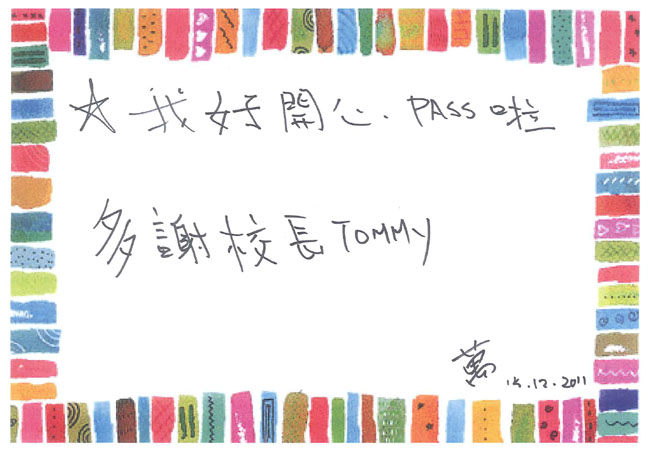 ☆我好開心. PASS啦
多謝校長TOMMY
萬 15.12.2011